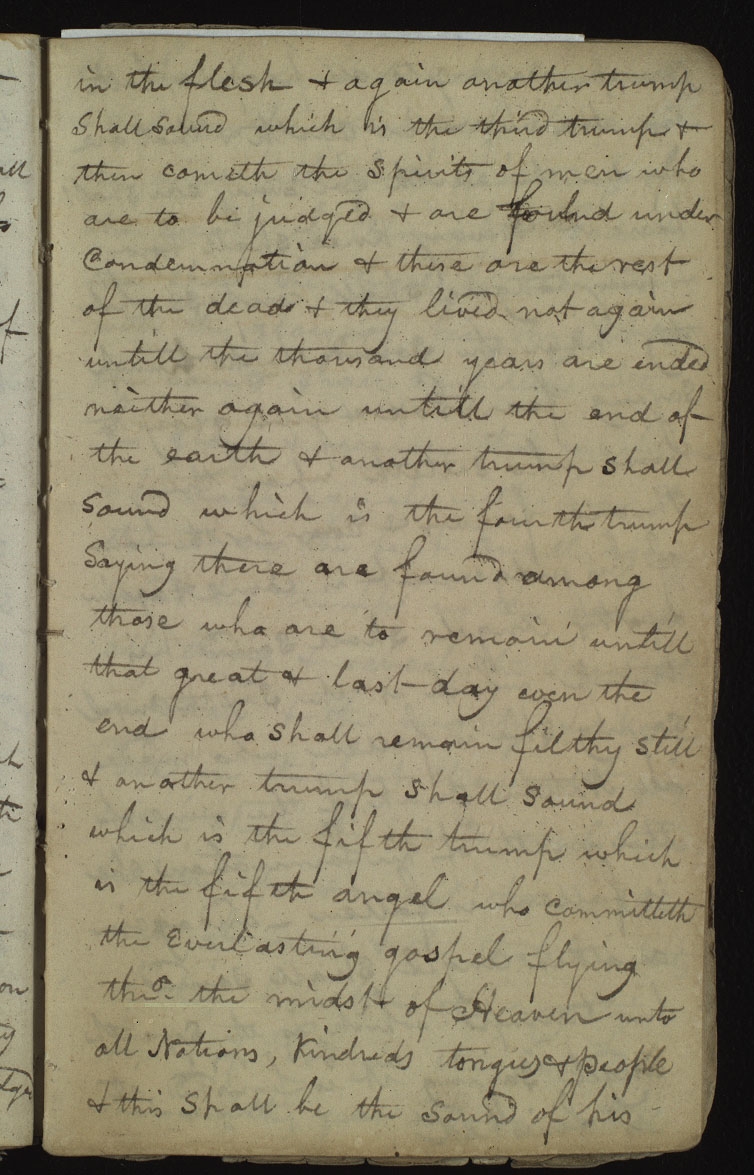 in the flesh & again another trump
Shall sound which is the third trump &
then cometh the Spirits of men who
are to be judged & are found under
Condemnation & these are the rest
of the dead & they lived not again
untill the thousand years are ended
neither again untill the end of
the earth & another trump shall
Sound which is the fourth trump
Saying there are found among
those who are to remain untill
that great & last day even the
end who Shall remain filthy still
& another trump Shall Sound
which is the fifth trump which
is the fifth angel who committeth
the Everlasting gospel flying
thro the midst of Heaven unto
all Nations, Kindreds tongues & people
& this Shall be the Sound of his